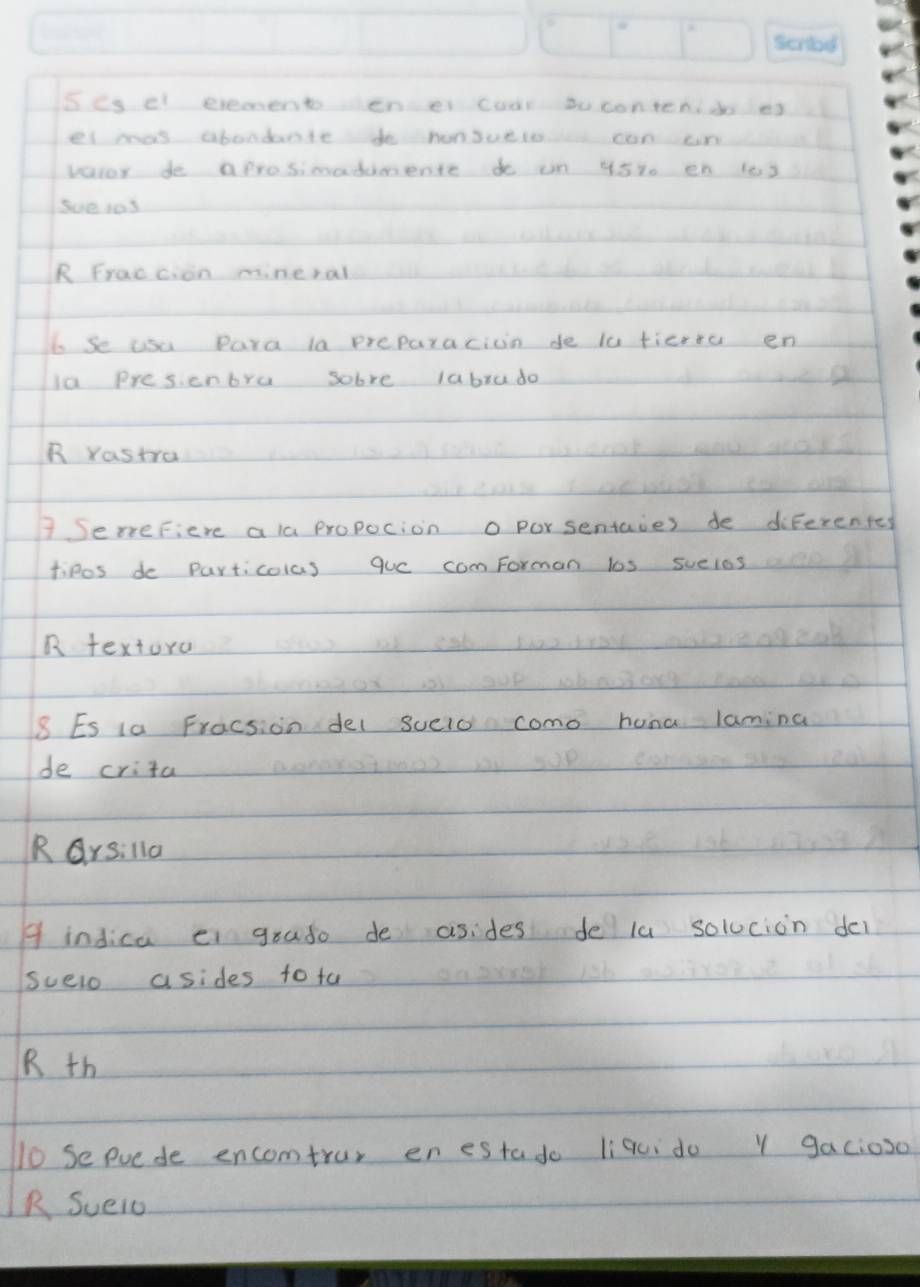 Scribe
5 es el elemento en el cual su contenido es
el mas abondante de hunsuelo con un
valor de aprosimadamente de un 45% en los
suelos
R Fraccion mineral
6 Se usa Para la preparación de la tierra en
la presienbra sobre labrado
R rastra
7 Serrefiere a la propocion o porsentaies de diferentes
tipos de particolas que comforman los suelos
R textura
8 Es la fracsion del suelo como huna lamina
de crita
R Arsilla
9 indica el grado de asides de la solución del
suelo asides tota
R th
10 Se puede encomtrar en estado liquido y gacioso
R Suelo